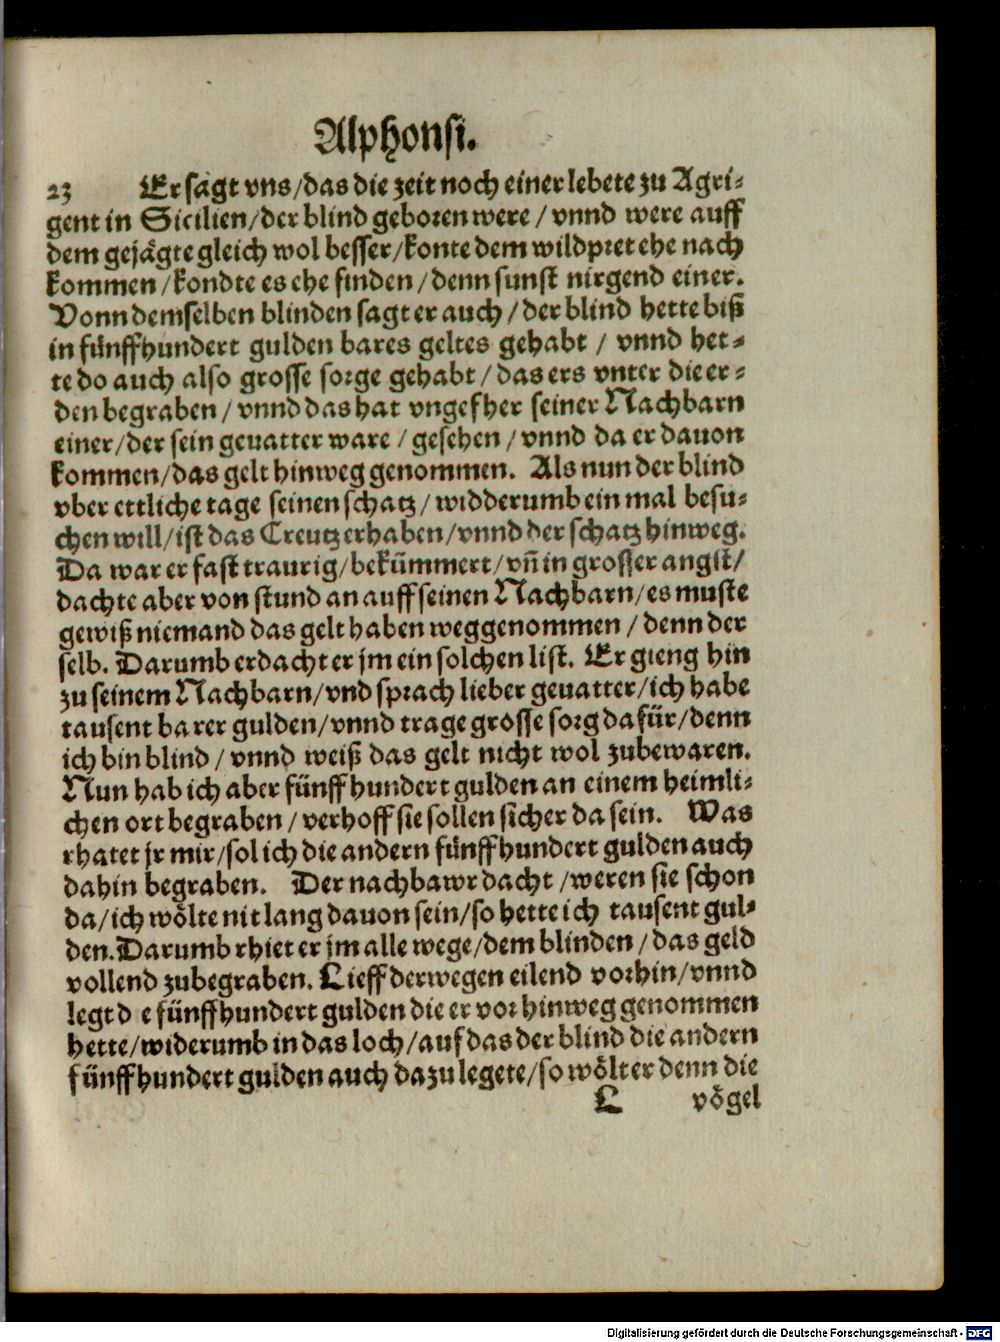 Alphonsi.
23 Er sagt vns/das die zeit noch einer lebete zu Agri-
gent in Sicilien/der blind geboren were/vnnd were auff
dem gejägte gleich wol besser/konte dem wildpret ehe nach
kommen/kondte es ehe finden/denn sunst nirgend einer.
Vonn demselben blinden sagt er auch/der blind hette biß
in fünffhundert gulden bares geltes gehabt/vnnd het-
te do auch also grosse sorge gehabt/das ers vnter die er-
den begraben/vnnd das hat vngefher seiner Nachbarn
einer/der sein geuatter ware/gesehen/vnnd da er dauon
kommen/das gelt hinweg genommen. Als nun der blind
vber ettliche tage seinen schatz/widderumb ein mal besu-
chen will/ist das Creutz erhaben/vnnd der schatz hinweg.
Da war er fast traurig/bekümmert/vñ in grosser angst/
dachte aber von stund an auff seinen Nachbarn/es muste
gewiß niemand das gelt haben weggenommen/denn der
selb. Darumb erdacht er jm ein solchen list. Er gieng hin
zu seinem Nachbarn/vnd sprach lieber geuatter/ich habe
tausent barer gulden/vnnd trage grosse sorg dafür/denn
ich bin blind/vnnd weiß das gelt nicht wol zubewaren.
Nun hab ich aber fünff hundert gulden an einem heimli-
chen ort begraben/verhoff sie sollen sicher da sein. Was
rhatet jr mir/sol ich die andern fünff hundert gulden auch
dahin begraben. Der nachbawr dacht/weren sie schon
da/ich wölte nit lang dauon sein/so hette ich tausent gul-
den. Darumb rhiet er jm alle wege/dem blinden/das geld
vollend zubegraben. Lieff derwegen eilend vorhin/vnnd
legt d e fünffhundert gulden die er vor hinweg genommen
hette/widerumb in das loch/auf das der blind die andern
fünffhundert gulden auch dazu legete/so wölt er denn die
L vögel
Digitalisierung gefördert durch die Deutsche Forschungsgemeinschaft - DFG